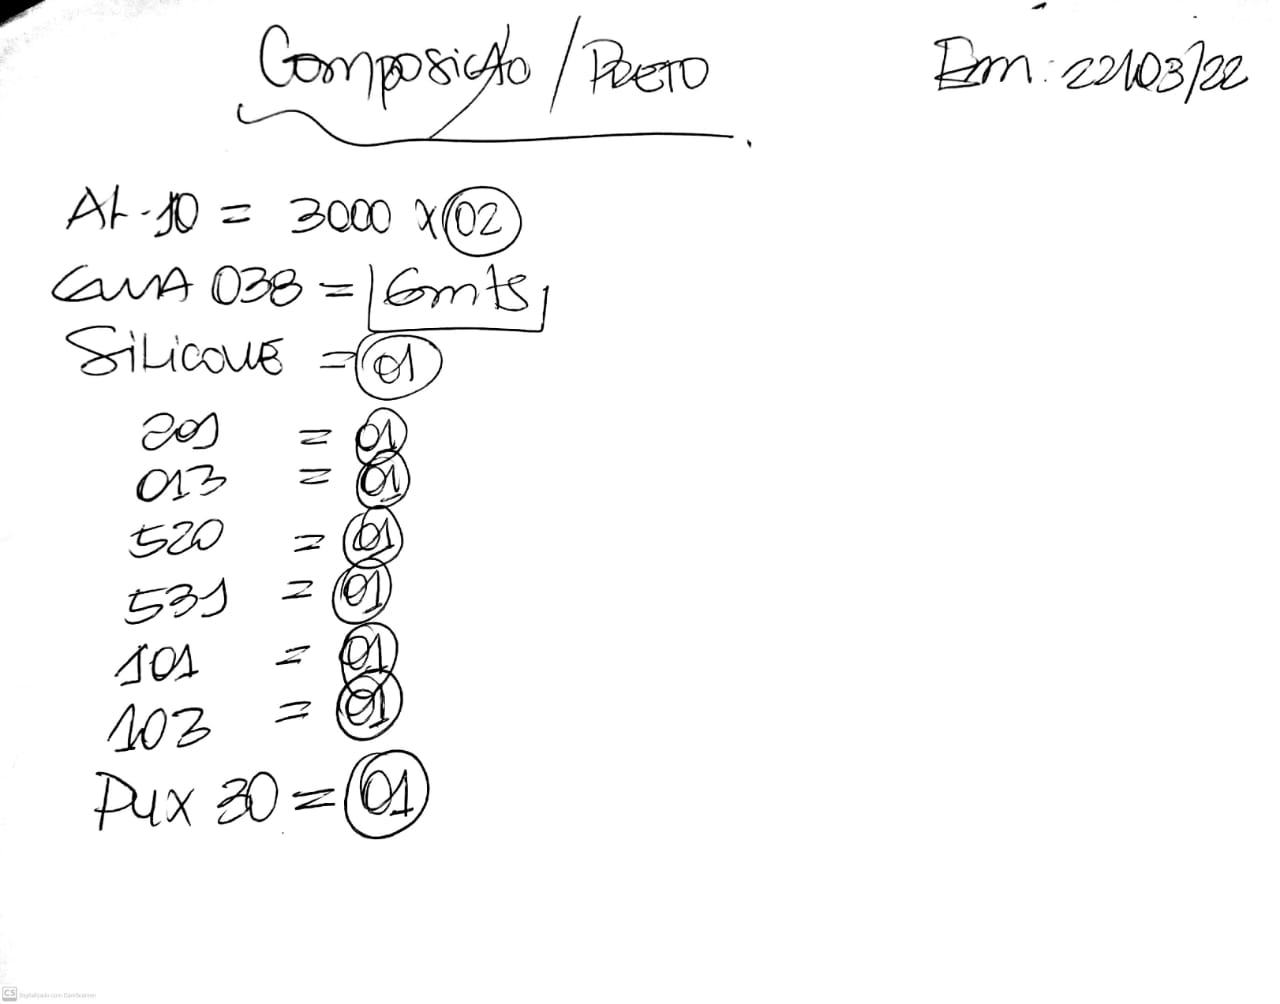 Composição / PRETO
Em: 22/03/22
AL-10 = 3000 x 02
GUIA 038 = 6mts
SILICONE = 01
201 = 01
013 = 01
520 = 01
531 = 01
101 = 01
103 = 01
PUX 30 = 01
CS Digitalizado com CamScanner